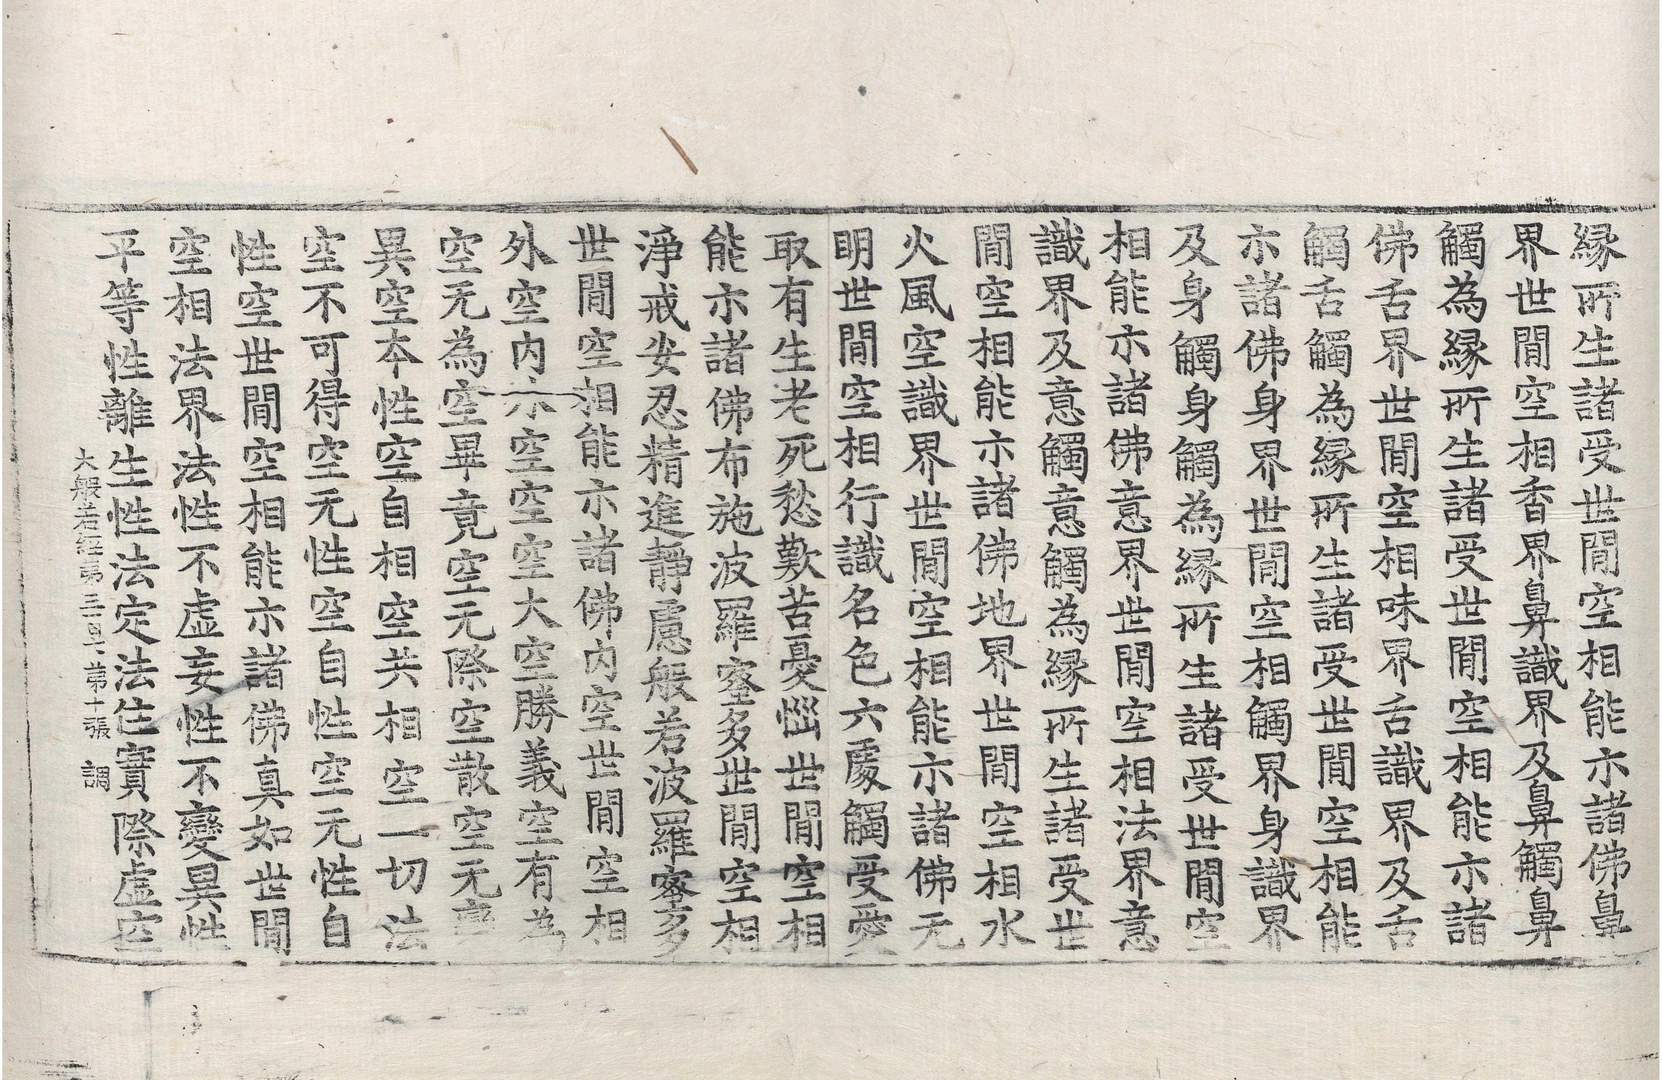 縁所生諸受世閒空相能示諸佛鼻
界世閒空相香界鼻識界及鼻觸鼻
觸為縁所生諸受世閒空相能示諸
佛舌界世閒空相味界舌識界及舌
觸舌觸為縁所生諸受世閒空相能
示諸佛身界世閒空相觸界身識界
及身觸身觸為縁所生諸受世閒空
相能示諸佛意界世閒空相法界意
識界及意觸意觸為縁所生諸受世
閒空相能示諸佛地界世閒空相水
火風空識界世閒空相能示諸佛无
明世閒空相行識名色六處觸受愛
取有生老死愁歎苦憂惱世閒空相
能示諸佛布施波羅蜜多世閒空相
淨戒安忍精進靜慮般若波羅蜜多
世閒空相能示諸佛内空世閒空相
外空内外空空空大空勝義空有為
空无為空畢竟空无際空散空无變
異空本性空自相空共相空一切法
空不可得空无性空自性空无性自
性空世閒空相能示諸佛真如世閒
空相法界法性不虛妄性不變異性
平等性離生性法定法住實際虛空
大般若經第三百 第十張 調